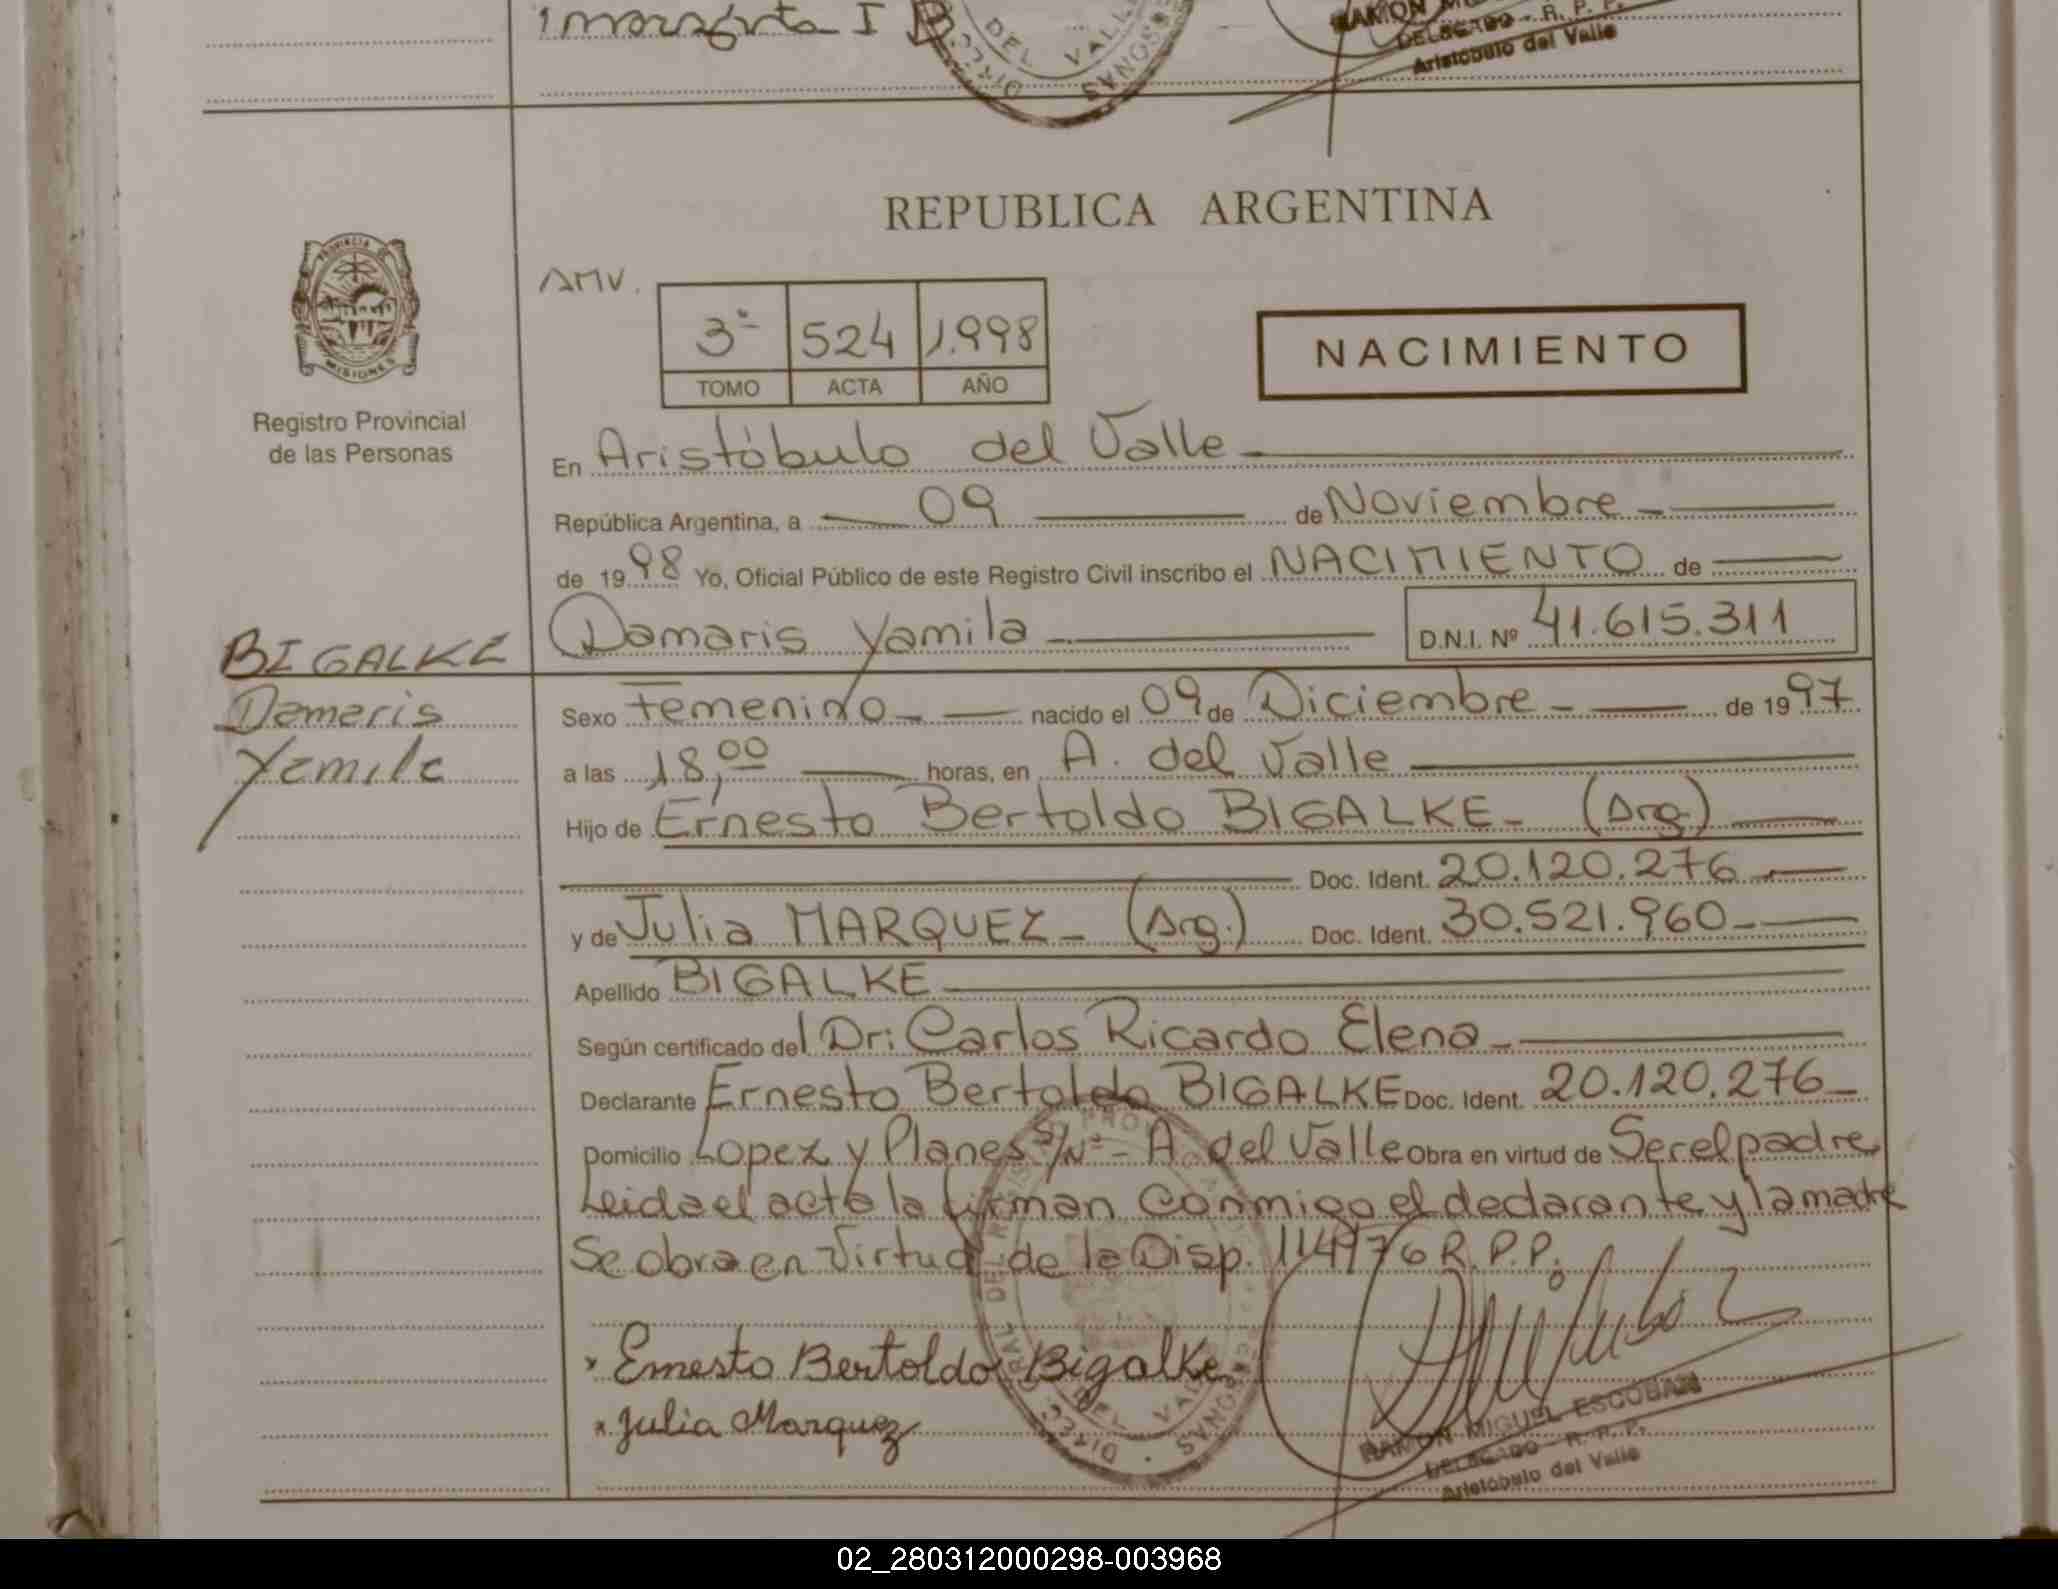 DEL VALLE
DIREC. PERSONAS
RAMON
DELEGADO - R. P. P.
Aristóbulo del Valle
REPUBLICA ARGENTINA
PROVINCIA DE
MISIONES
AMV.
3º 524 1.998
TOMO ACTA AÑO
NACIMIENTO
Registro Provincial
de las Personas
En Aristóbulo del Valle
República Argentina, a 09 de Noviembre
de 1998 Yo, Oficial Público de este Registro Civil inscribo el NACIMIENTO de
Damaris Yamila D.N.I. Nº 41.615.311
BIGALKE
Damaris
Yamila
Sexo Femenino nacido el 09 de Diciembre de 1997
a las 18,00 horas, en A. del Valle
Hijo de Ernesto Bertoldo BIGALKE (Arg.)
Doc. Ident. 20.120.276
y de Julia MARQUEZ (Arg.) Doc. Ident. 30.521.960
Apellido BIGALKE
Según certificado del Dr: Carlos Ricardo Elena
Declarante Ernesto Bertoldo BIGALKE Doc. Ident. 20.120.276
Domicilio Lopez y Planes S/Nº - A del Valle Obra en virtud de Ser el padre
Leida el acta la firman conmigo el declarante y la madre
Se obra en virtud de la Disp. 114/76 R.P.P.
x Ernesto Bertoldo Bigalke
x Julia Marquez
RAMON MIGUEL ESCOBAR
DELEGADO - R. P. P.
Aristóbulo del Valle
02_280312000298-003968